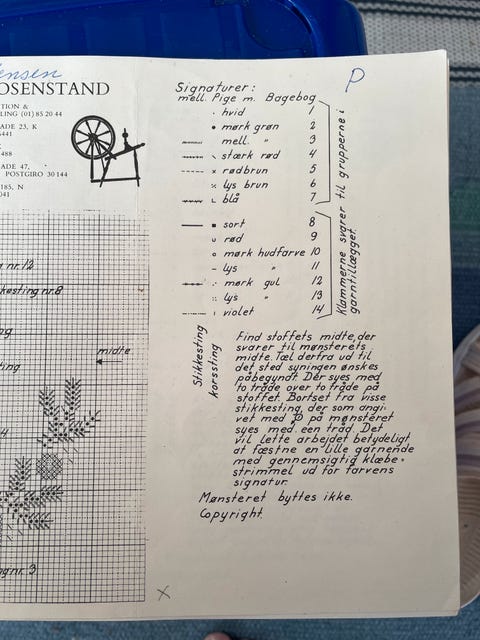 ensen
OSENSTAND
TION &
LING (01) 85 20 44
ADE 23, K
5441
K
488
ADE 47,
POSTGIRO 30 144
185, N
041
nr. 12
kesting nr. 8
ng
ting
midte
4
ng nr. 3
P
Signaturer:
mell. Pige m. Bagebog
hvid 1
mørk grøn 2
mell. " 3
stærk rød 4
rødbrun 5
lys brun 6
blå 7
sort 8
rød 9
mørk hudfarve 10
lys " 11
mørk gul 12
lys " 13
violet 14
Klammerne svarer til grupperne i
garntillægget.
Stikkesting
korssting
Find stoffets midte, der
svarer til mønsterets
midte. Tæl derfra ud til
det sted syningen ønskes
påbegyndt. Der syes med
to tråde over to tråde på
stoffet. Bortset fra visse
stikkesting, der som angi-
vet med P på mønsteret
syes med een tråd. Det
vil lette arbejdet betydeligt
at fæstne en lille garnende
med gennemsigtig klæbe-
strimmel ud for farvens
signatur.
Mønsteret byttes ikke.
Copyright.
X